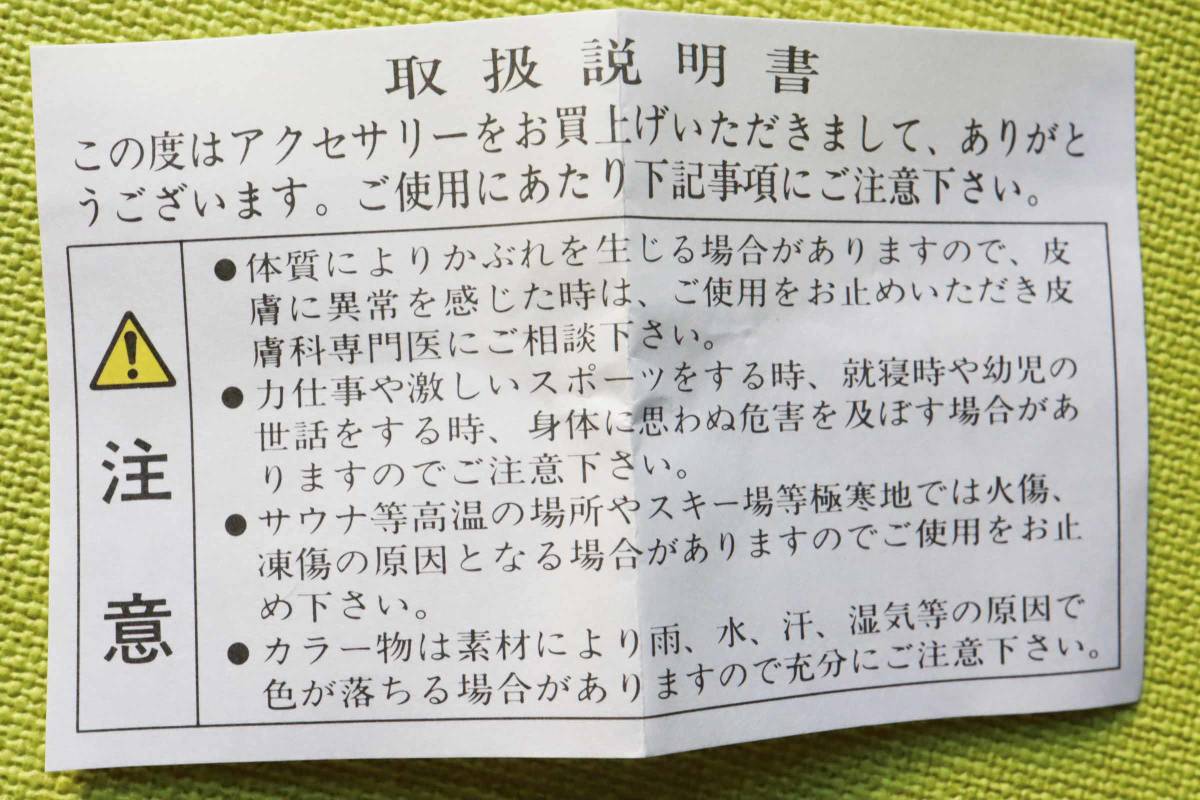 取扱説明書
この度はアクセサリーをお買上げいただきまして、ありがと
うございます。ご使用にあたり下記事項にご注意下さい。
注意
●体質によりかぶれを生じる場合がありますので、皮
膚に異常を感じた時は、ご使用をお止めいただき皮
膚科専門医にご相談下さい。
●力仕事や激しいスポーツをする時、就寝時や幼児の
世話をする時、身体に思わぬ危害を及ぼす場合があ
りますのでご注意下さい。
●サウナ等高温の場所やスキー場等極寒地では火傷、
凍傷の原因となる場合がありますのでご使用をお止
め下さい。
●カラー物は素材により雨、水、汗、湿気等の原因で
色が落ちる場合がありますので充分にご注意下さい。